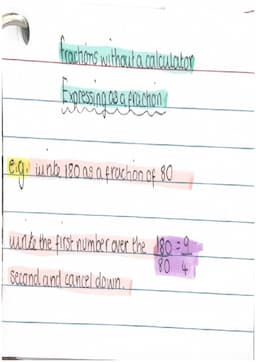 fractions without a calculator
Expressing as a fraction
e.g. write 180 as a fraction of 80
write the first number over the 180 = 9
80 4
second and cancel down.